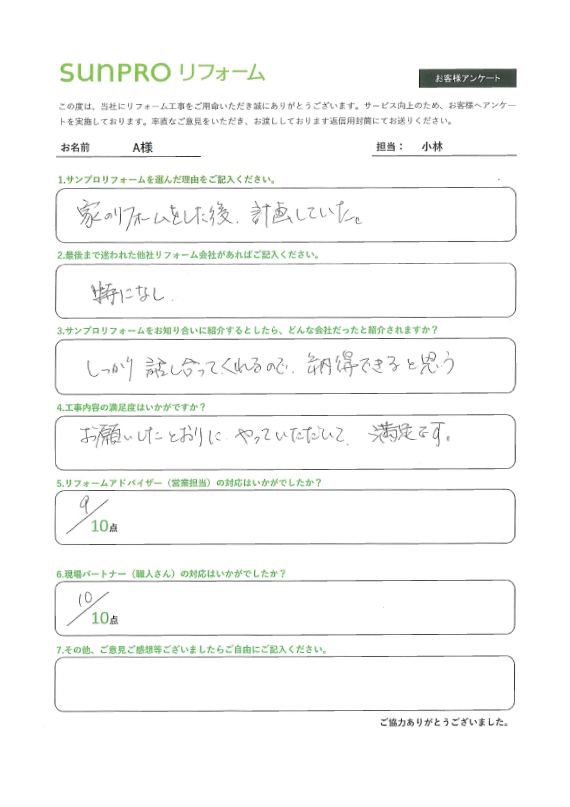 SUNPRO リフォーム
お客様アンケート
この度は、当社にリフォーム工事をご用命いただき誠にありがとうございます。サービス向上のため、お客様へアンケー
トを実施しております。率直なご意見をいただき、お渡ししております返信用封筒にてお送りください。
お名前 A様 担当： 小林
1.サンプロリフォームを選んだ理由をご記入ください。
家のリフォームをした後、計画していた。
2.最後まで迷われた他社リフォーム会社があればご記入ください。
特になし.
3.サンプロリフォームをお知り合いに紹介するとしたら、どんな会社だったと紹介されますか？
しっかり話し合ってくれるので、納得できると思う
4.工事内容の満足度はいかがですか？
お願いしたとおりに やっていただいて、満足です。
5.リフォームアドバイザー（営業担当）の対応はいかがでしたか？
9
10点
6.現場パートナー（職人さん）の対応はいかがでしたか？
10
10点
7.その他、ご意見ご感想等ございましたらご自由にご記入ください。
ご協力ありがとうございました。